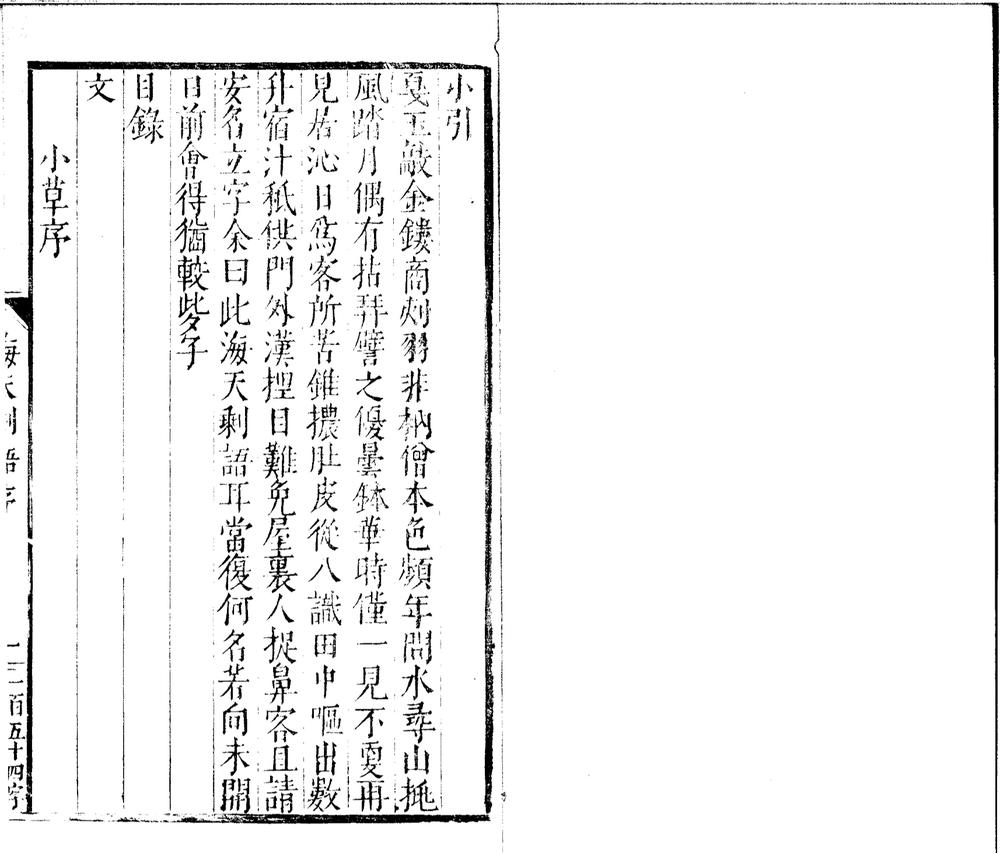 小引
戛玉敲金鏤商刻羽非衲僧本色頻年問水尋山拖
風踏月偶有拈弄譬之優曇鉢華時僅一見不要再
見居沁日為客所苦錐攮肚皮從八識田中嘔出數
升宿汁秪供門外漢揑目難免屋裏人捉鼻客且請
安名立字余曰此海天剩語耳當復何名若向未開
口前會得猶較些子
目錄
文
小草序
海天剩語序
一 二百五十四字